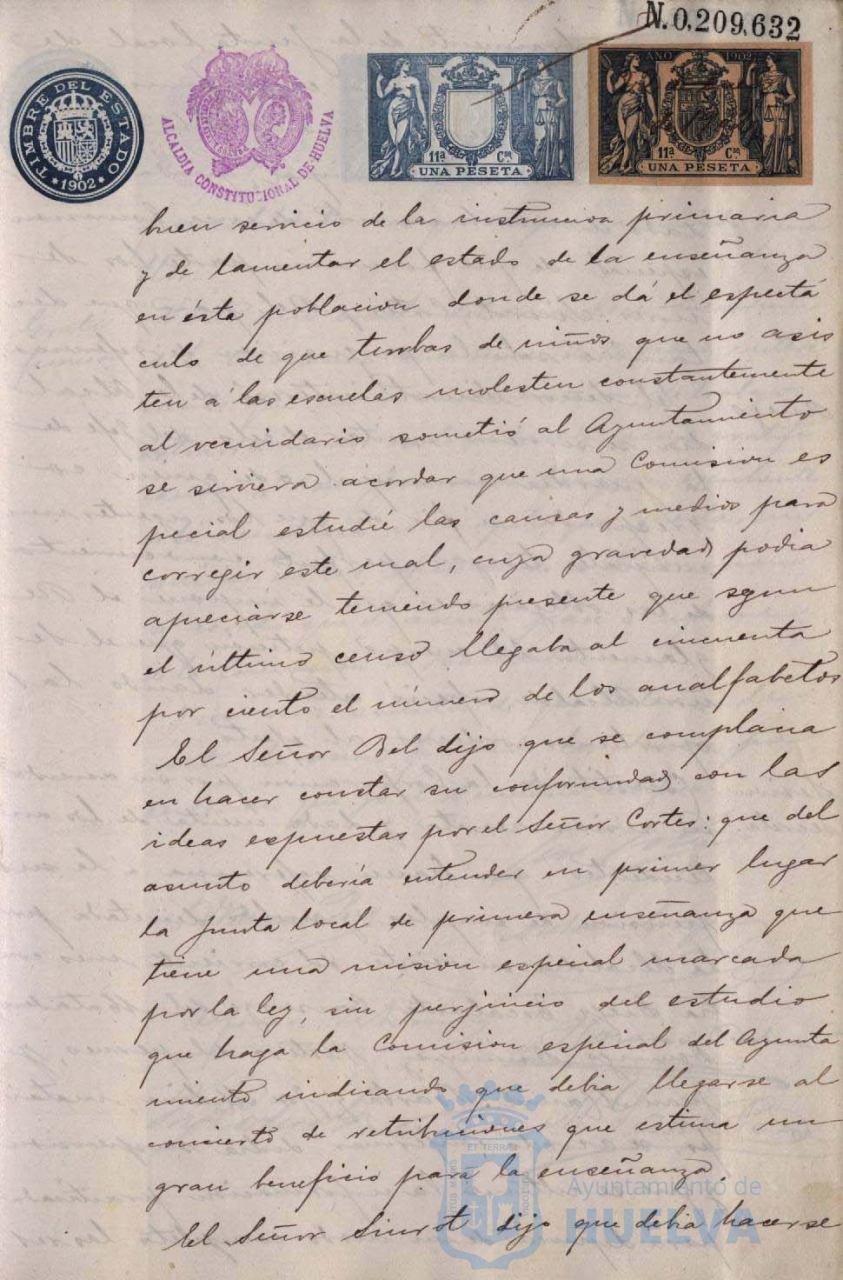 N. 0,209,632
TIMBRE DEL ESTADO
* 1902 *
ALCALDIA CONSTITUCIONAL DE HUELVA
AÑO 1902
11ª Cse
UNA PESETA
AÑO 1902
11ª Cse
UNA PESETA
buen servicio de la instruccion primaria
y de lamentar el estado de la enseñanza
en ésta poblacion donde se dá el espectá
culo de que turbas de niños que no asis
ten á las escuelas molesten constantemente
al vecindario sometió al Ayuntamiento
se sirviera acordar que una Comision es
pecial estudie las causas y medios para
corregir este mal, cuya gravedad podia
apreciarse teniendo presente que segun
el último censo llegaba al cincuenta
por ciento el número de los analfabetos
El Señor Bel dijo que se complacia
en hacer constar su conformidad con las
ideas espuestas por el Señor Cortes: que del
asunto debería entender en primer lugar
la Junta local de primera enseñanza que
tiene una mision especial marcada
por la ley, sin perjuicio del estudio
que haga la Comision especial del Ayunta
miento indicando que debia llegarse al
concierto de retribuciones que estima un
gran beneficio para la enseñanza.
El Señor Siurot dijo que debia hacerse
Ayuntamiento de
HUELVA